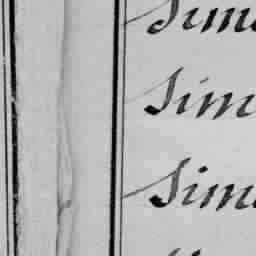 Sim
Sim
Sim